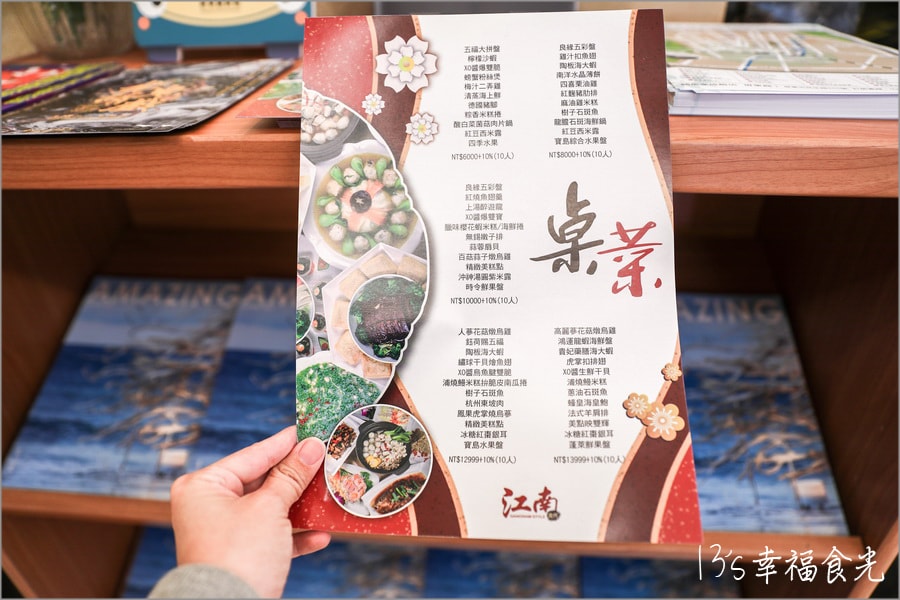 五福大拼盤
檸檬沙蝦
XO醬爆雙脆
螃蟹粉絲煲
梅汁二弄雞
清蒸海上鮮
德國豬腳
粽香米糕捲
酸白菜菌菇肉片鍋
紅豆西米露
四季水果
NT$6000+10%(10人)
良緣五彩盤
雞汁扣魚翅
陶板海大蝦
南洋水晶薄餅
四喜栗油雞
紅麴豬肋排
麻油雞米糕
樹子石斑魚
龍膽石斑海鮮鍋
紅豆西米露
寶島綜合水果盤
NT$8000+10%(10人)
良緣五彩盤
紅燒魚翅羹
上湯醉遊龍
XO醬爆雙寶
臘味櫻花蝦米糕/海鮮捲
無錫嫩子排
蒜蓉扇貝
百菇蒜子燉烏雞
精緻美糕點
沖神湯圓紫米露
時令鮮果盤
NT$10000+10%(10人)
桌菜
人蔘花菇燉烏雞
鈺荷賜五福
陶板海大蝦
繡球干貝燴魚翅
XO醬烏魚腱雙脆
浦燒鰻米糕拚脆皮南瓜捲
樹子石斑魚
杭州東坡肉
鳳果虎掌燒烏蔘
精緻美糕點
冰糖紅棗銀耳
寶島水果盤
NT$12999+10%(10人)
高麗蔘花菇燉烏雞
鴻運龍蝦海鮮盤
貴妃藥膳海大蝦
虎掌扣排翅
XO醬生鮮干貝
浦燒鰻米糕
蔥油石斑魚
鱘皇海皇鮑
法式羊肩排
美點映雙輝
冰糖紅棗銀耳
蓬萊鮮果盤
NT$13999+10%(10人)
江南
AMAZING
AMAZING
13's幸福食光